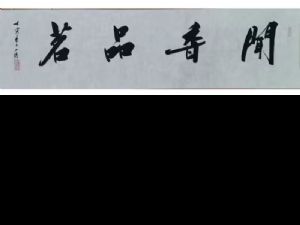 聞香品茗